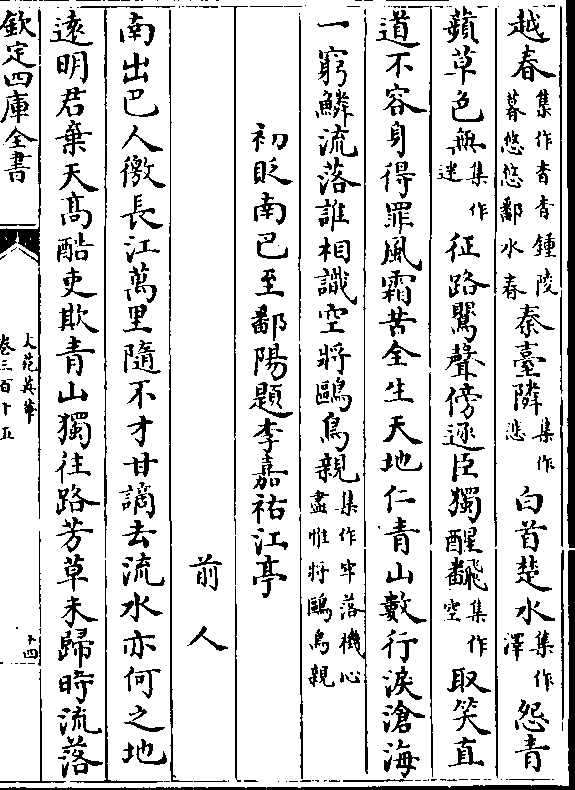 越春集作青青鍾陵暮悠悠鄱水春秦臺隣集作悲白首楚水集作澤怨青
蘋草色無集作迷征路鸎聲傍逐臣獨醒飜集作空取笑直
道不容身得罪風霜苦全生天地仁青山數行淚滄海
一窮鱗流落誰相識空將鷗鳥親集作牢落機心盡惟將鷗鳥親
初貶南巴至鄱陽題李嘉祐江亭
前人
南出巴人徼長江萬里隨不才甘謫去流水亦何之地
遠明君棄天髙酷吏欺青山獨往路芳草未歸時流落
欽定四庫全書
文苑英華
卷三百十五
十四